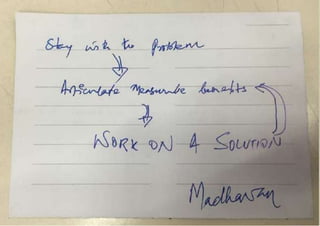 Stay with the Problem
Articulate Measurable benefits
WORK ON A SOLUTION
Madhavan